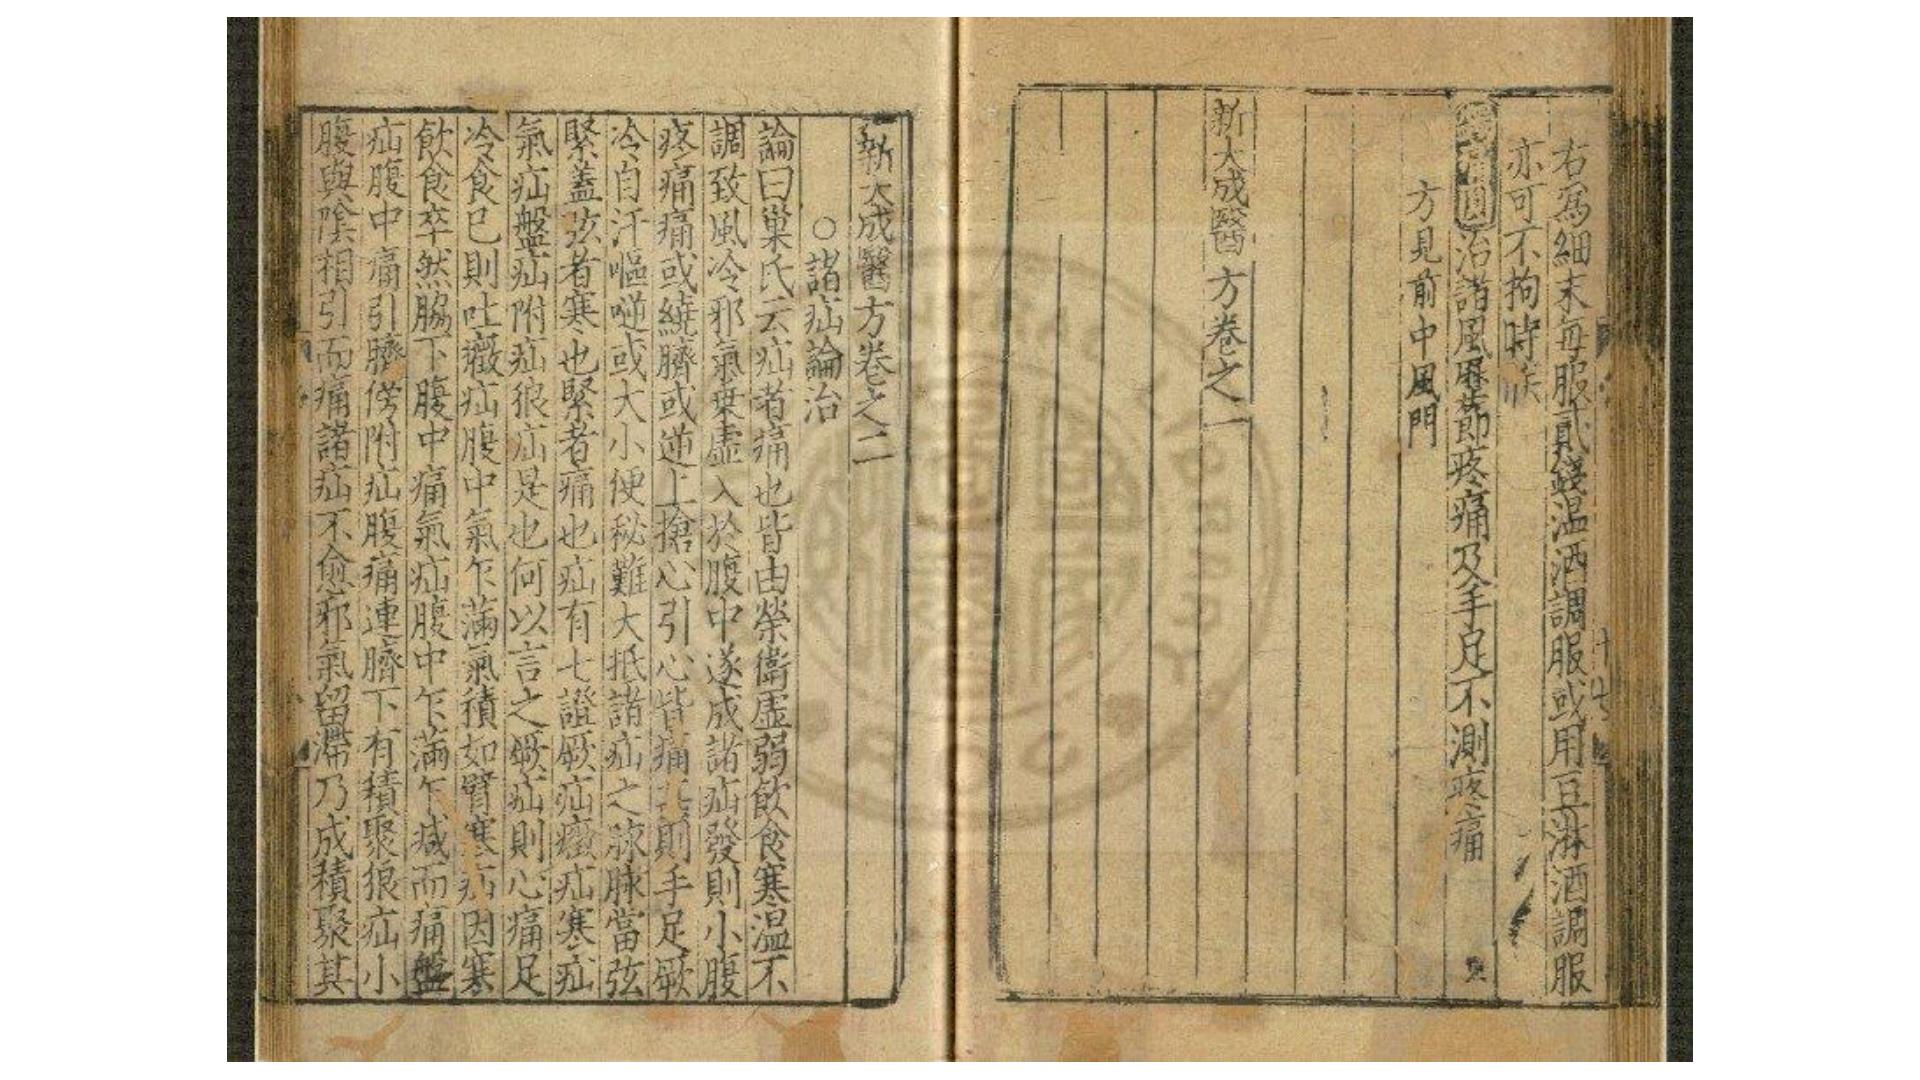 右爲細末每服貳錢温酒調服或用豆淋酒調服
亦可不拘時候
治諸風歷節疼痛及手足不測疼痛
方見前中風門
新大成醫方卷之一
新大成醫方卷之二
○諸疝論治
論曰巢氏云疝者痛也皆由榮衞虛弱飮食寒温不
調致風冷邪氣乗虛入於腹中遂成諸疝發則小腹
疼痛痛或繞臍或逆上搶心引心皆痛甚則手足厥
冷自汗嘔噦或大小便秘難大抵諸疝之脉脉當弦
緊蓋弦者寒也緊者痛也疝有七證厥疝癥疝寒疝
氣疝盤疝附疝狼疝是也何以言之厥疝則心痛足
冷食已則吐癥疝腹中氣乍滿氣積如臂寒疝因寒
飮食卒然脇下腹中痛氣疝腹中乍滿乍减而痛盤
疝腹中痛引臍傍附疝腹痛連臍下有積聚狼疝小
腹與陰相引而痛諸疝不愈邪氣留滯乃成積聚其
十七